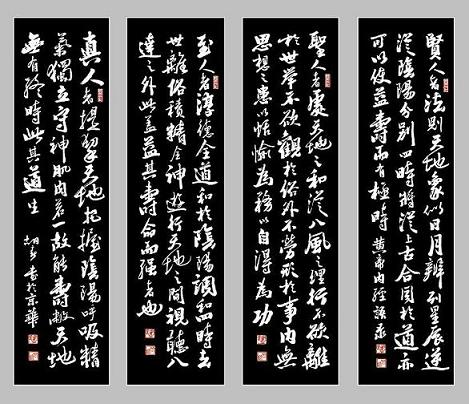 真人者提挈天地把握陰陽呼吸精
氣獨立守神肌肉若一故能壽敝天地
無有終時此其道生
書於京華
至人者淳德全道和於陰陽調和四時去
世離俗積精全神遊行天地之間視聽八
達之外此蓋益其壽命而強者也
聖人者處天地之和從八風之理行不欲離
於世舉不欲觀於俗外不勞形於事內無
思想之患以恬愉為務以自得為功
賢人者法則天地象似日月辯列星辰逆
從陰陽分別四時將從上古合同於道亦
可以使益壽而有極時
黃帝內經語录